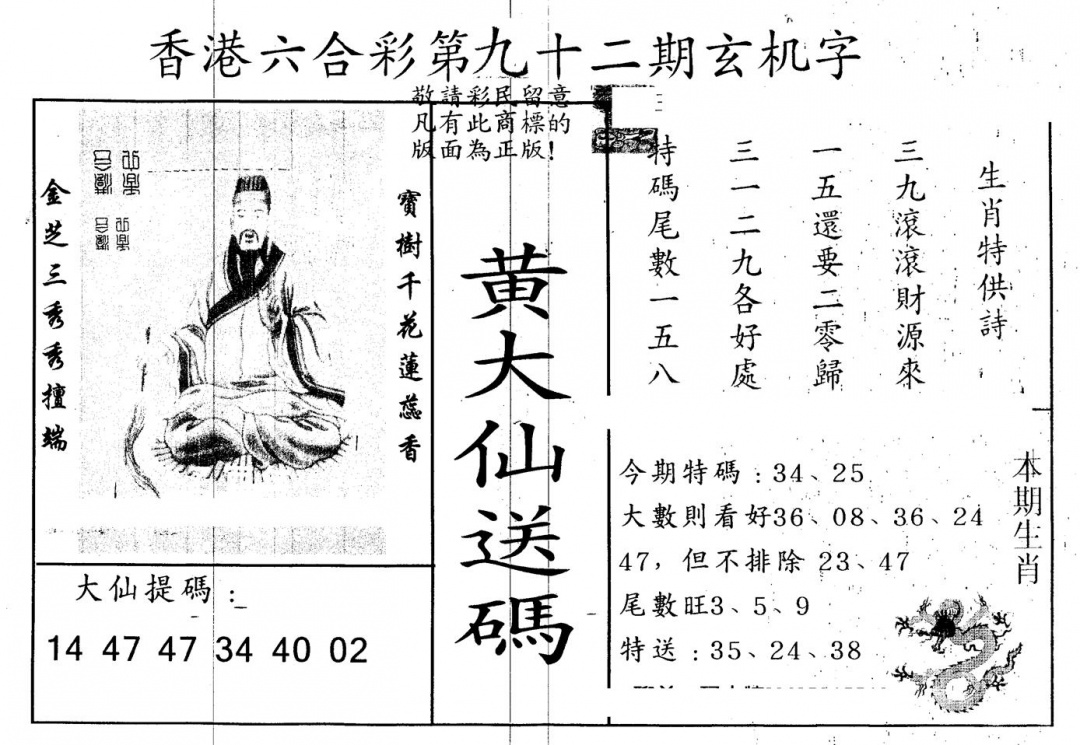 香港六合彩第九十二期玄机字
敬請彩民留意
凡有此商標的
版面為正版!
金芝三秀秀擅端
寶樹千花蓮蕊香
黄大仙送碼
生肖特供詩
三九滾滾財源來
一五還要二零歸
三一二九各好處
特碼尾數一五八
大仙提碼:
14 47 47 34 40 02
今期特碼:34、25
大數則看好36、08、36、24
47，但不排除 23、47
尾數旺3、5、9
特送:35、24、38
本期生肖